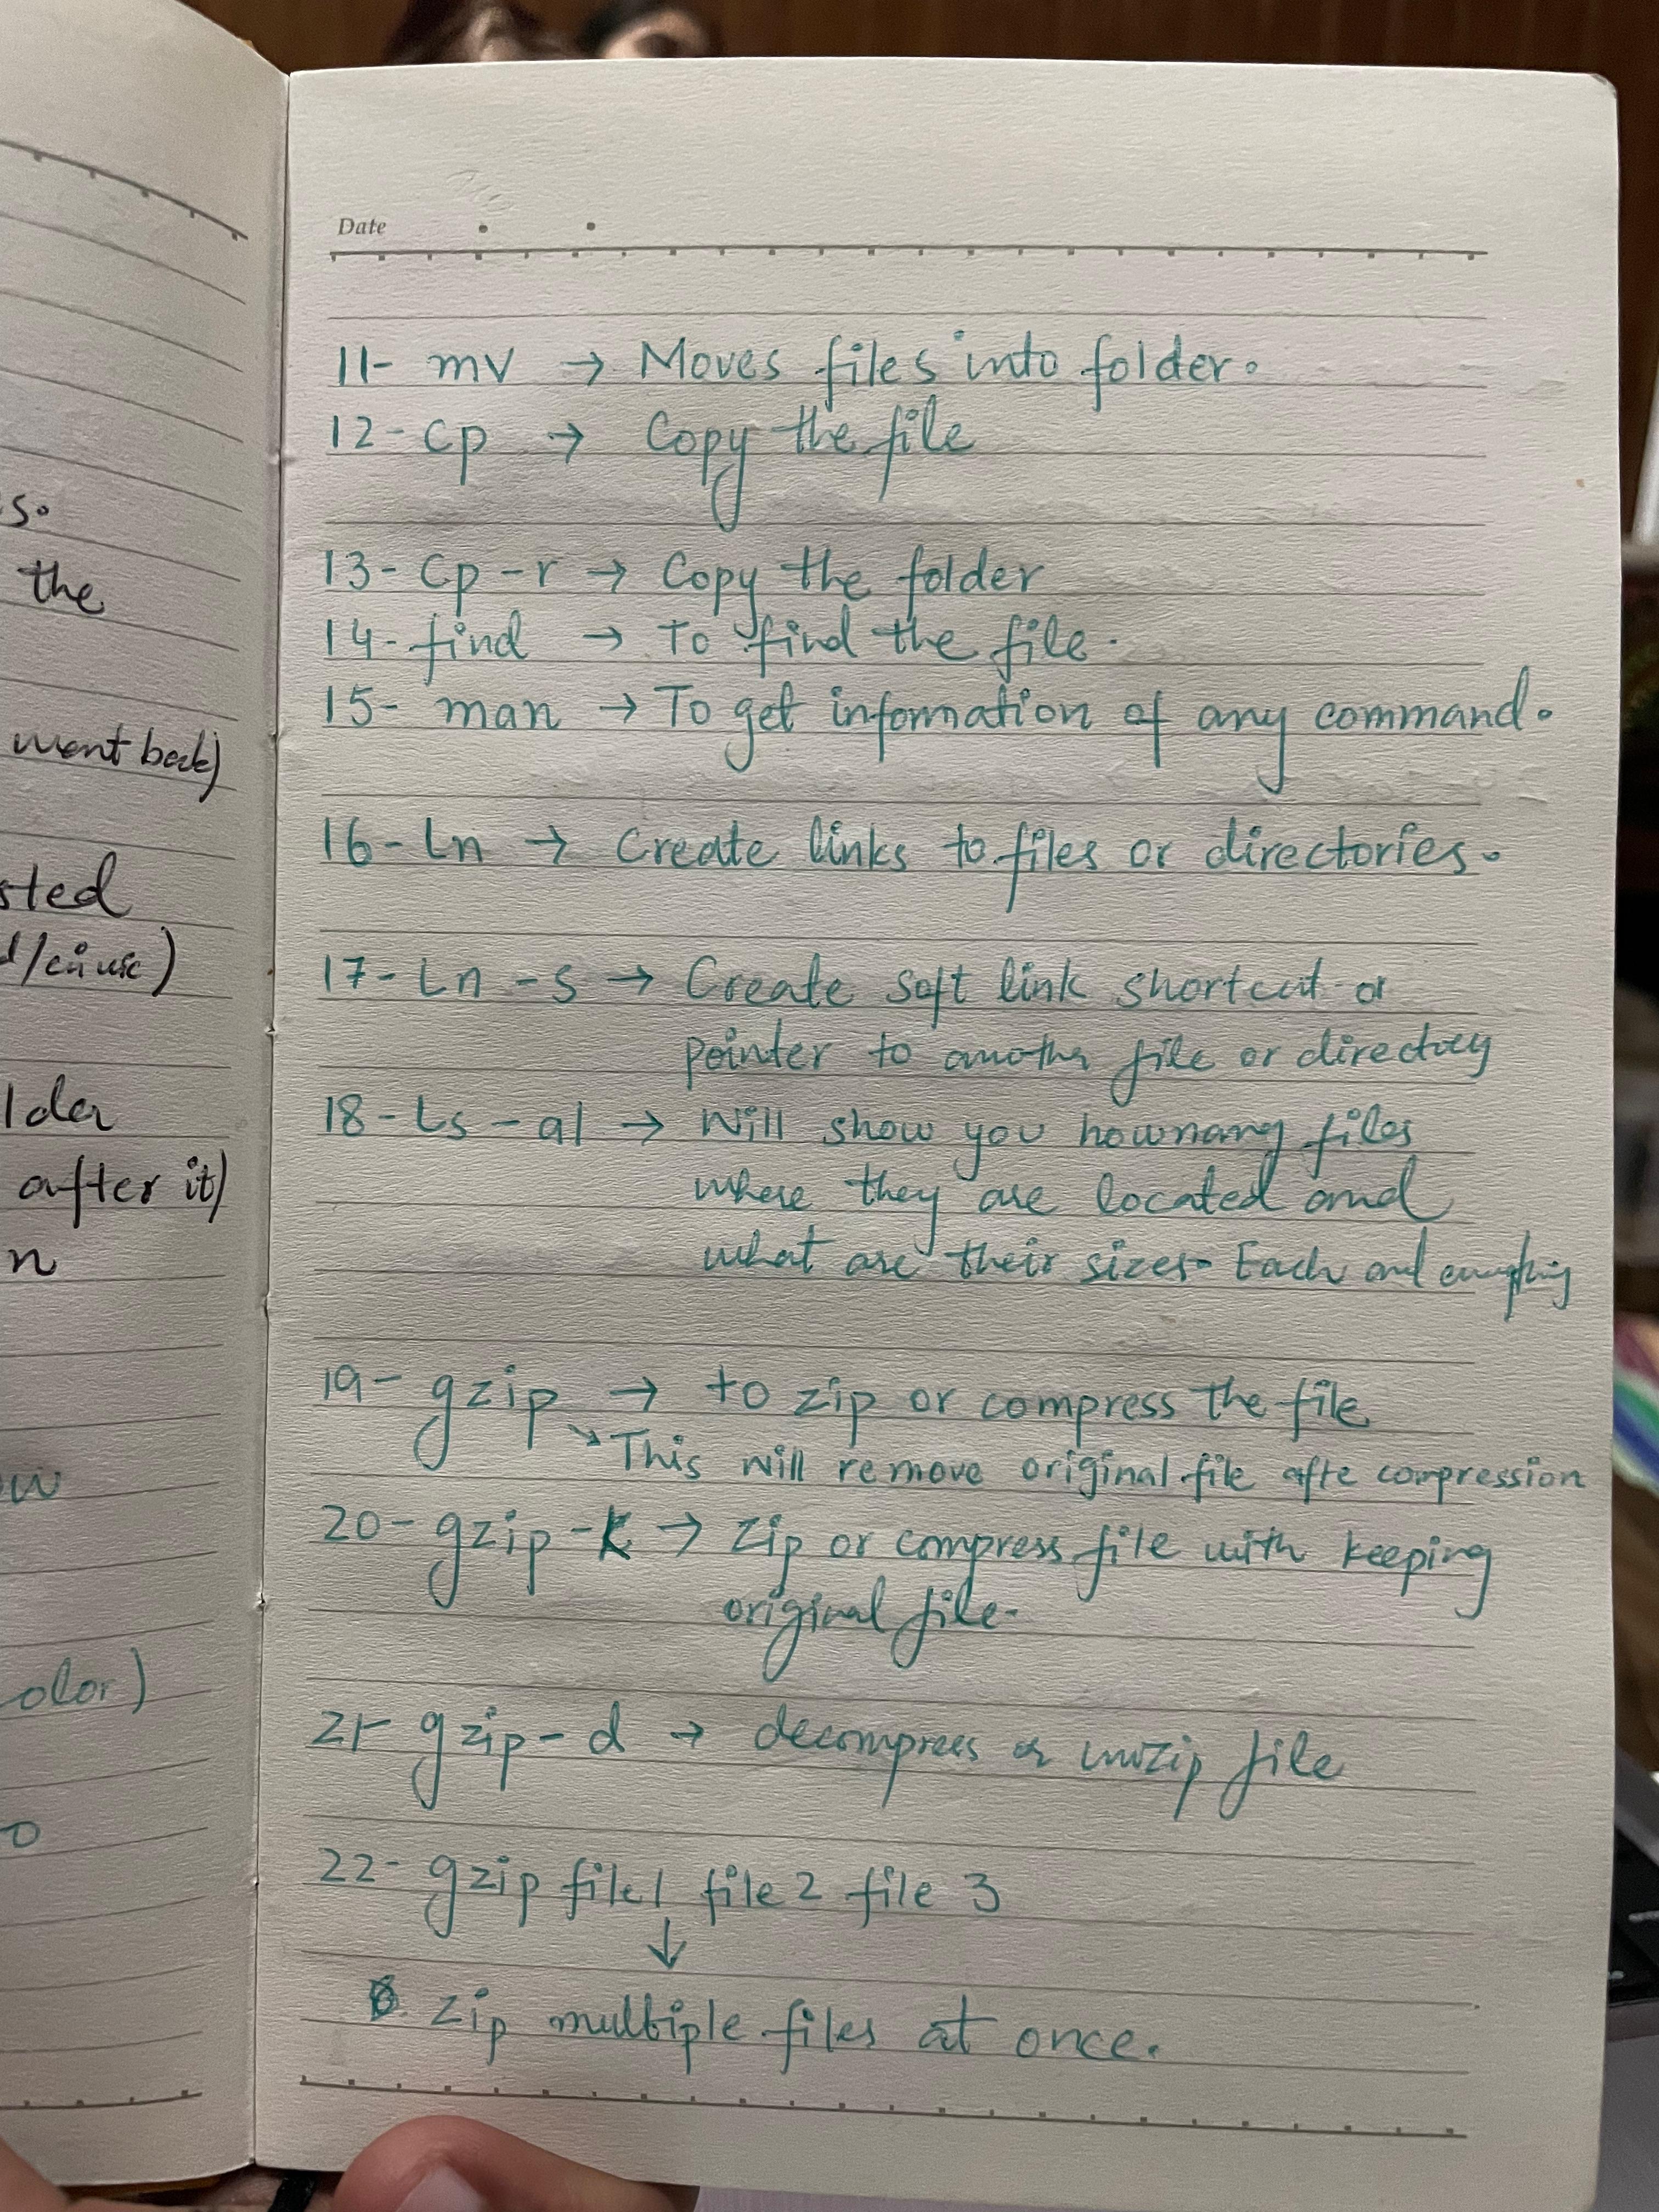 s.
the
went back)
sted
lder
after it)
n
w
olor)
o
Date
11- mv → Moves files into folder.
12- cp → Copy the file
13- cp -r → Copy the folder
14- find → To find the file.
15- man → To get information of any command.
16- Ln → Create links to files or directories.
17- Ln -s → Create soft link shortcut or
pointer to another file or directory
18- Ls -al → Will show you howmany files
where they are located and
what are their sizes- Each and everything
19- gzip → to zip or compress the file
↘ This will remove original file afte compression
20- gzip -k → Zip or compress file with keeping
original file-
21- gzip - d → decompress or unzip file
22- gzip file1 file2 file 3
↓
Zip multiple files at once.